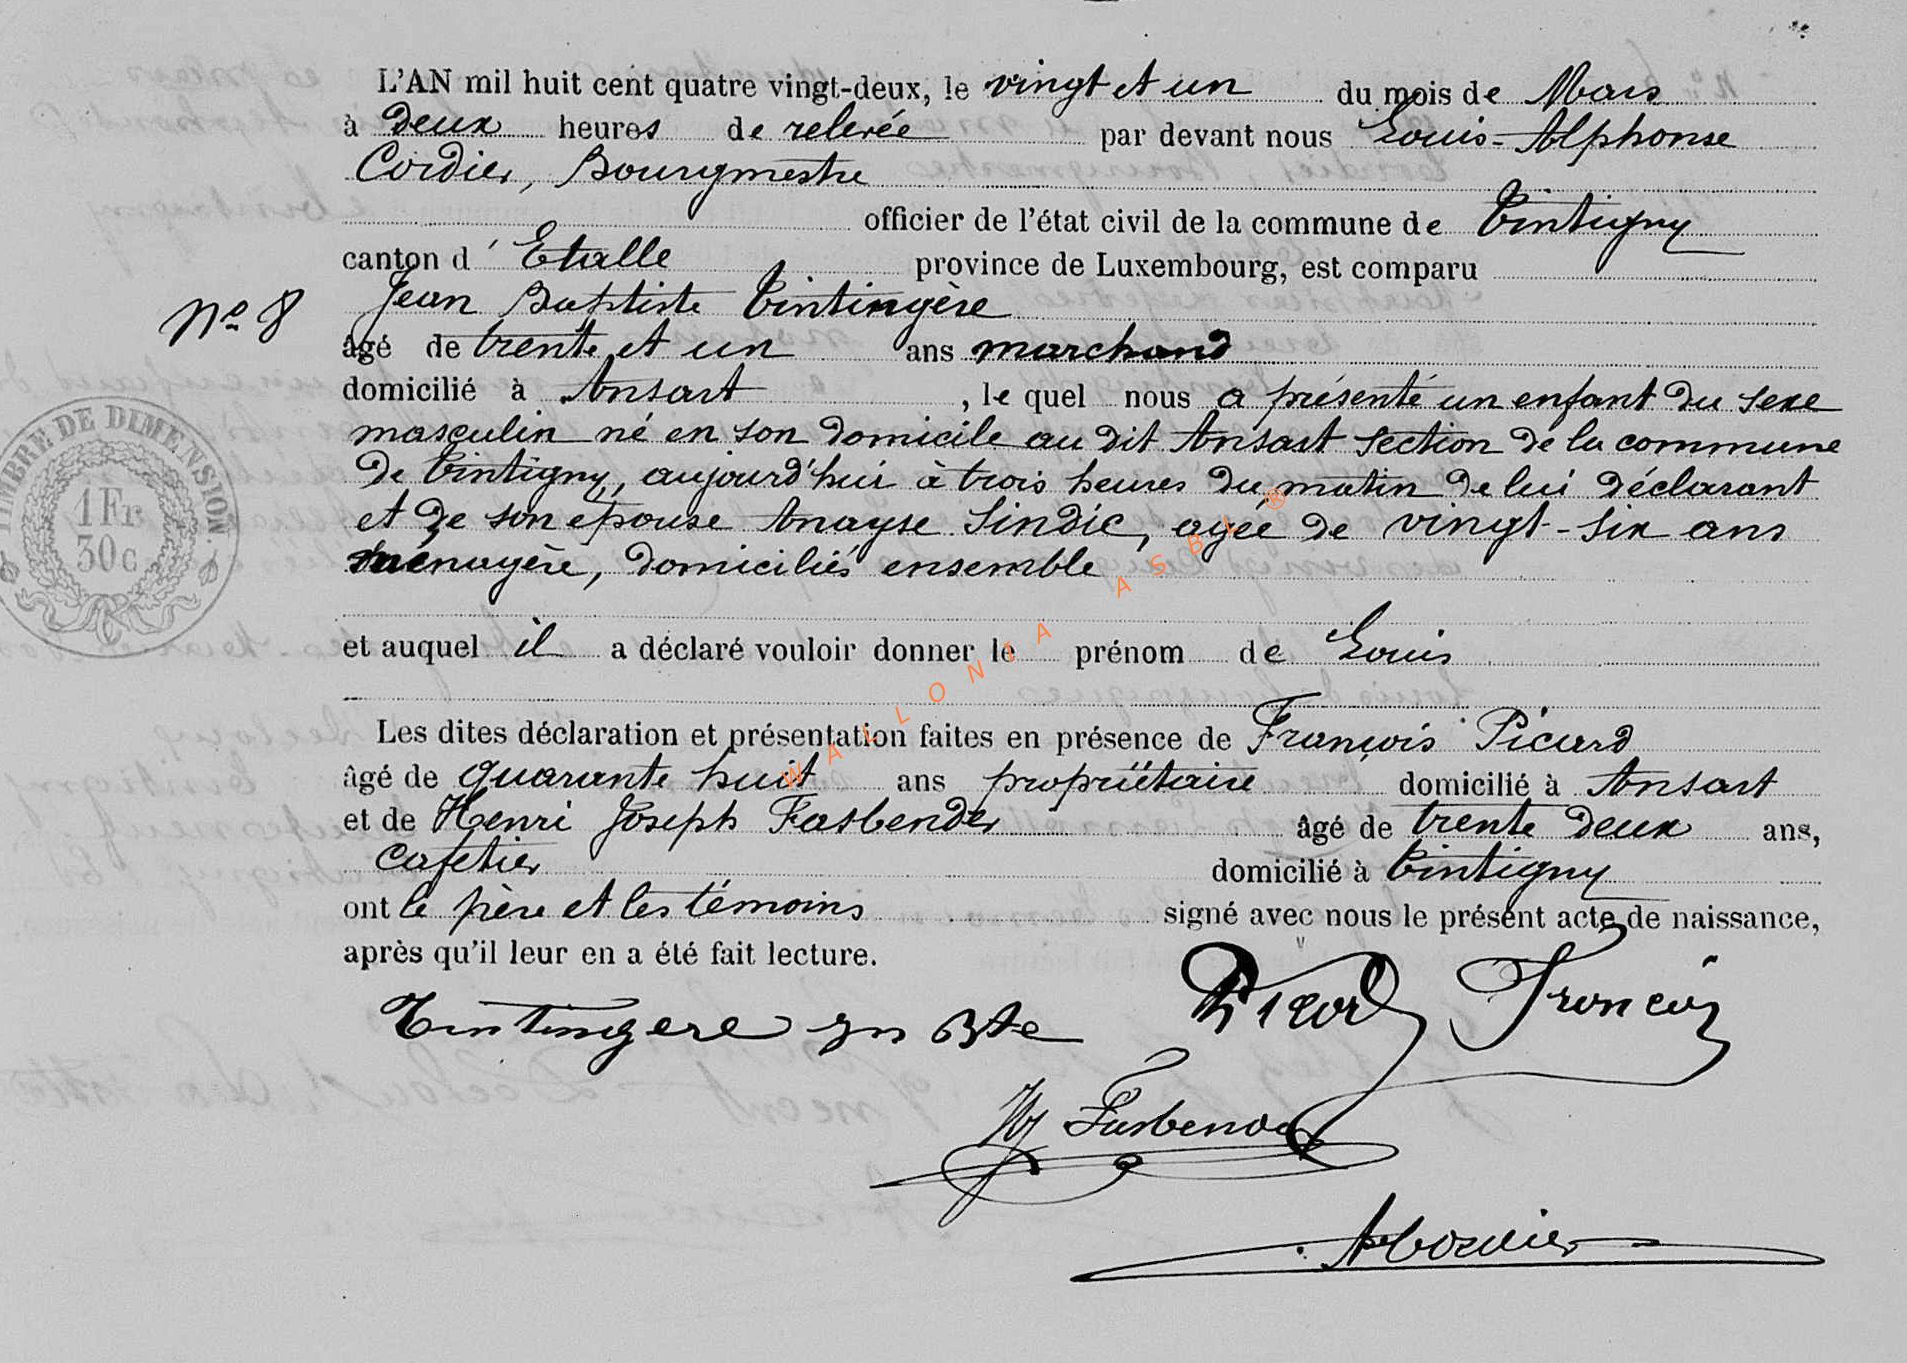 L'AN mil huit cent quatre vingt-deux, le vingt et un du mois de Mars
à deux heures de relevée par devant nous Louis-Alphonse
Cordier, Bourgmestre
officier de l'état civil de la commune de Tintigny
canton d' Etalle province de Luxembourg, est comparu
Jean Baptiste Tintingère
Nº 8
âgé de trente et un ans marchand
domicilié à Ansart, le quel nous a présenté un enfant du sexe
masculin né en son domicile au dit Ansart section de la commune
de Tintigny, aujourd'hui à trois heures du matin de lui déclarant
et de son épouse Anayse Sindic, agée de vingt-six ans
ménagère, domiciliés ensemble
et auquel il a déclaré vouloir donner le prénom de Louis
Les dites déclaration et présentation faites en présence de François Picard
âgé de quarante huit ans propriétaire domicilié à Ansart
et de Henri Joseph Fasbender âgé de trente deux ans,
cafetier domicilié à Tintigny
ont le père et les témoins signé avec nous le présent acte de naissance,
après qu'il leur en a été fait lecture.
Tintingere Jn Bte
Picard François
HJ Fasbender
A Cordier
TIMBRE DE DIMENSION.
1 Fr.
30 c
WALLONIA ASBL ®